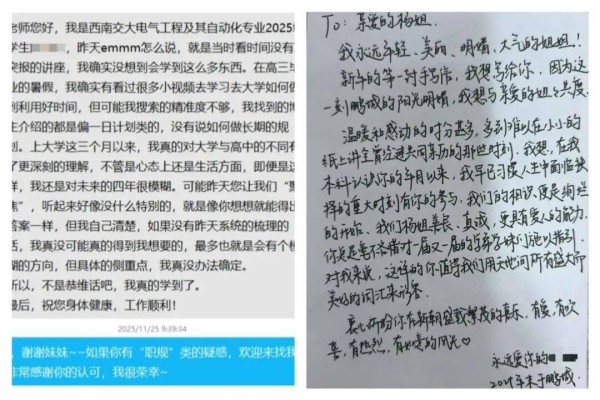 老师您好，我是西南交大电气工程及其自动化专业2025
学生
，昨天emmm怎么说，就是当时看时间没有
突报的讲座，我确实没想到会学到这么多东西。在高三毕
业的暑假，我确实有看过很多小视频去学习去大学如何做
到利用好时间，但可能我搜索的精准度不够，我找到的博
主介绍的都是偏一日计划类的，没有说如何做长期的规
划。上大学这三个月以来，我真的对大学与高中的不同有
了更深刻的理解，不管是心态上还是生活方面，即便是这
样，我还是对未来的四年很模糊。可能昨天您让我们“聚
焦”，听起来好像没什么特别的，就是像您想想就能得出
答案一样，但我自己清楚，如果没有昨天系统的梳理的
话，我真没可能真的得到我想要的，最多也就是会有个模
糊的方向，但具体的侧重点，我真没办法确定。
所以，不是恭维话吧，我真的学到了。
最后，祝您身体健康，工作顺利！
2025/11/25 9:39:34
，谢谢妹妹~~如果你有“职规”类的疑惑，欢迎来找我
非常感谢你的认可，我很荣幸~
To：亲爱的杨姐
我永远年轻、美丽、明媚、大气的姐姐！
新年的第一封手写信，我想写给你，因为这
一刻鹏城的阳光明媚，我想与亲爱的姐姐共度。
温暖和感动的时分甚多，多到难以在小小的
纸上讲全曾经共同亲历的那些时刻。我想，在我
本科认识你的年月以来，我早已习惯人生中面临抉
择的重大时刻有你的参与，我们的相识便是绚烂
的开始。我们杨姐善良、真诚，更具有爱人的能力。
你总是毫不吝惜对一届又一届的学弟学妹们施以指引。
对我来说，这样的你值得我们用天地间所有盛大而
美好的词汇来形容。
衷心祈盼你在新朝盛载繁茂的喜乐，有爱，有欢
喜，有热烈，有如意的风光
永远爱你的